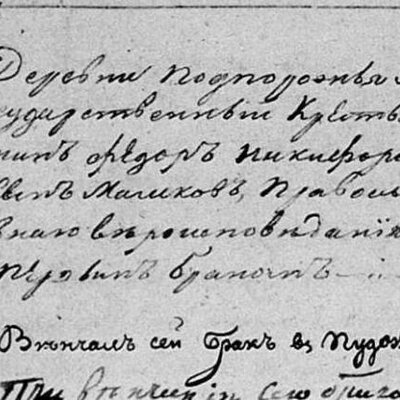 Деревни Подпорожья
сударственный Кресть
нинъ Ѳедоръ Никифоро
вынъ Маликовъ, Правосл
внаго вѣроисповѣданія
первымъ бракомъ
Вѣнчалъ сей бракъ въ Пудо
При вѣнчаніи сего брака